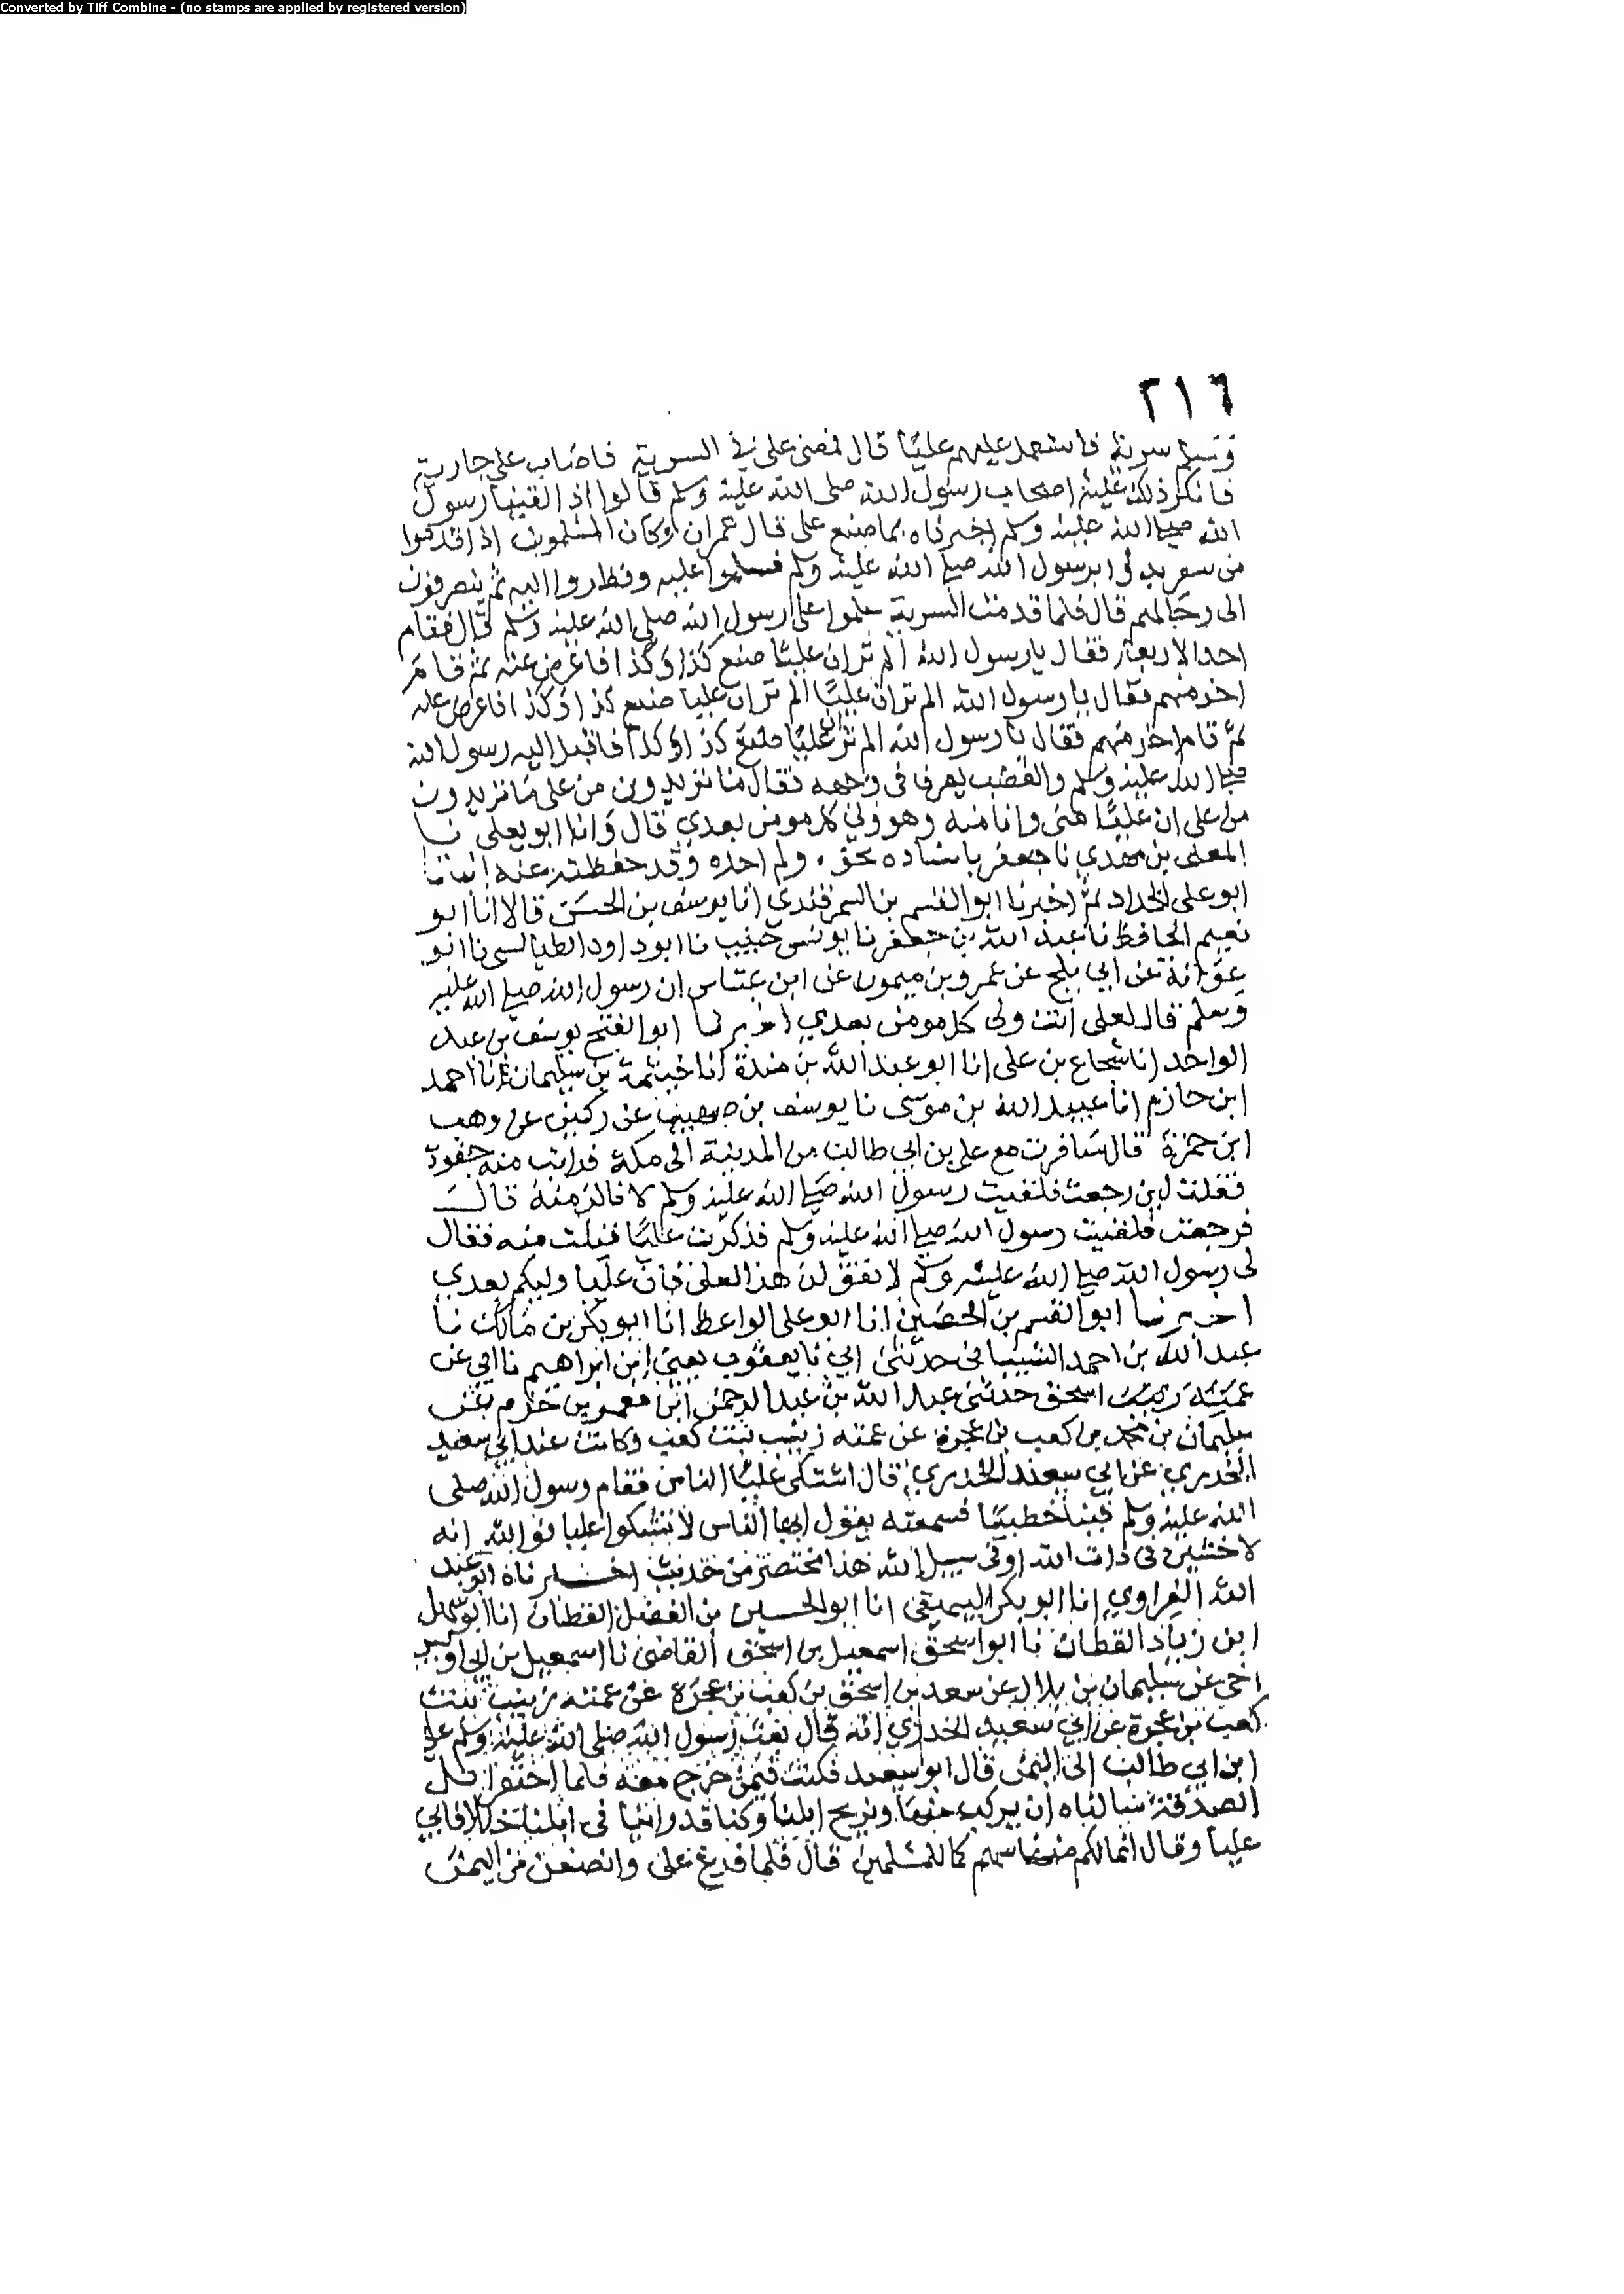 Converted by Tiff Combine - (no stamps are applied by registered version)
٢١٦
وسلم سرية فاستعمل عليهم عليا قال فمضى علي في السرية فاصاب علي جارية
فانكر ذلك عليه اصحاب رسول الله صلى الله عليه وسلم قالوا اذا لقينا رسول
الله صلى الله عليه وسلم اخبرناه بما صنع علي قال عمران وكان المسلمون اذا قدموا
من سفر بدوا برسول الله صلى الله عليه وسلم فسلموا عليه ونظروا اليه ثم ينصرفون
الى رحالهم قال فلما قدمت السرية سلموا على رسول الله صلى الله عليه وسلم قال فقام
احد الاربعة فقال يا رسول الله الم تر ان عليا صنع كذا وكذا فاعرض عنه ثم قام
اخر منهم فقال يا رسول الله الم تر ان عليا الم تر ان عليا صنع كذا وكذا فاعرض عنه
ثم قام اخر منهم فقال يا رسول الله الم تر ان عليا صنع كذا وكذا فاقبل اليه رسول الله
صلى الله عليه وسلم والغضب يعرف في وجهه فقال ما تريدون من علي ما تريدون
من علي ان عليا مني وانا منه وهو ولي كل مومن بعدي قال وانا ابو يعلى نا
المعلى بن مهدي نا جعفر باسناده نحوه ولم احده وقد حفظته عنه انبانا
ابو علي الحداد ثم اخبرنا ابو القسم بن السمرقندي انا يوسف بن الحسن قالا انا ابو
نعيم الحافظ نا عبد الله بن جعفر نا يونس حبيب نا ابو داود الطيالسي نا ابو
عوانة عن ابي بلج عن عمرو بن ميمون عن ابن عباس ان رسول الله صلى الله عليه
وسلم قال لعلي انت ولي كل مومن بعدي اخبرنا ابو الفتح يوسف بن عبد
الواحد انا شجاع بن علي انا ابو عبد الله بن مندة انا خيثمة بن سليمان انا احمد
ابن حازم انا عبيد الله بن موسى نا يوسف بن صهيب عن ركين عن وهب
ابن حمزة قال سافرت مع علي بن ابي طالب من المدينة الى مكة فرايت منه جفوة
فقلت لين رجعت فلقيت رسول الله صلى الله عليه وسلم لانالن منه قال
فرجعت فلقيت رسول الله صلى الله عليه وسلم فذكرت عليا فنلت منه فقال
لي رسول الله صلى الله عليه وسلم لا تقولن هذا لعلي فان عليا وليكم بعدي
اخبرنا ابو القسم بن الحصين انا ابو علي الواعظ انا ابو بكر بن مالك نا
عبد الله بن احمد الشيباني حدثني ابي نا يعقوب يعني ابن ابراهيم نا ابي عن
اسحق حدثني عبد الله بن عبد الرحمن ابن معمر بن حزم عن
سليمان بن محمد بن كعب بن عجرة عن عمته زينب بنت كعب وكانت عند ابي سعيد
الخدري عن ابي سعيد الخدري قال اشتكى عليا الناس فقام رسول الله صلى
الله عليه وسلم فينا خطيبا فسمعته يقول ايها الناس لا تشكوا عليا فوالله انه
لاخشين في ذات الله او في سبيل الله هذا مختصر من حديث اخبرناه ابو عبد
الله الفراوي انا ابو بكر البيهقي انا ابو الحسين بن الفضل القطان انا ابو سهل
ابن زياد القطان نا ابو اسحق اسمعيل بن اسحق القاضي نا اسمعيل بن ابي اويس
اخي عن سليمان بن بلال عن سعد بن اسحق بن كعب بن عجرة عن عمته زينب بنت
كعب بن عجرة عن ابي سعيد الخدري انه قال بعث رسول الله صلى الله عليه وسلم علي
ابن ابي طالب الى اليمن قال ابو سعيد فكنت فيمن خرج معه فلما
الصدقة سالناه ان يركب منها ونريح ابلنا وكنا قد راينا في ابلنا خللا فابى
علينا وقال انما لكم منها سهم كما للمسلمين قال فلما فرغ علي وانصفق من اليمن